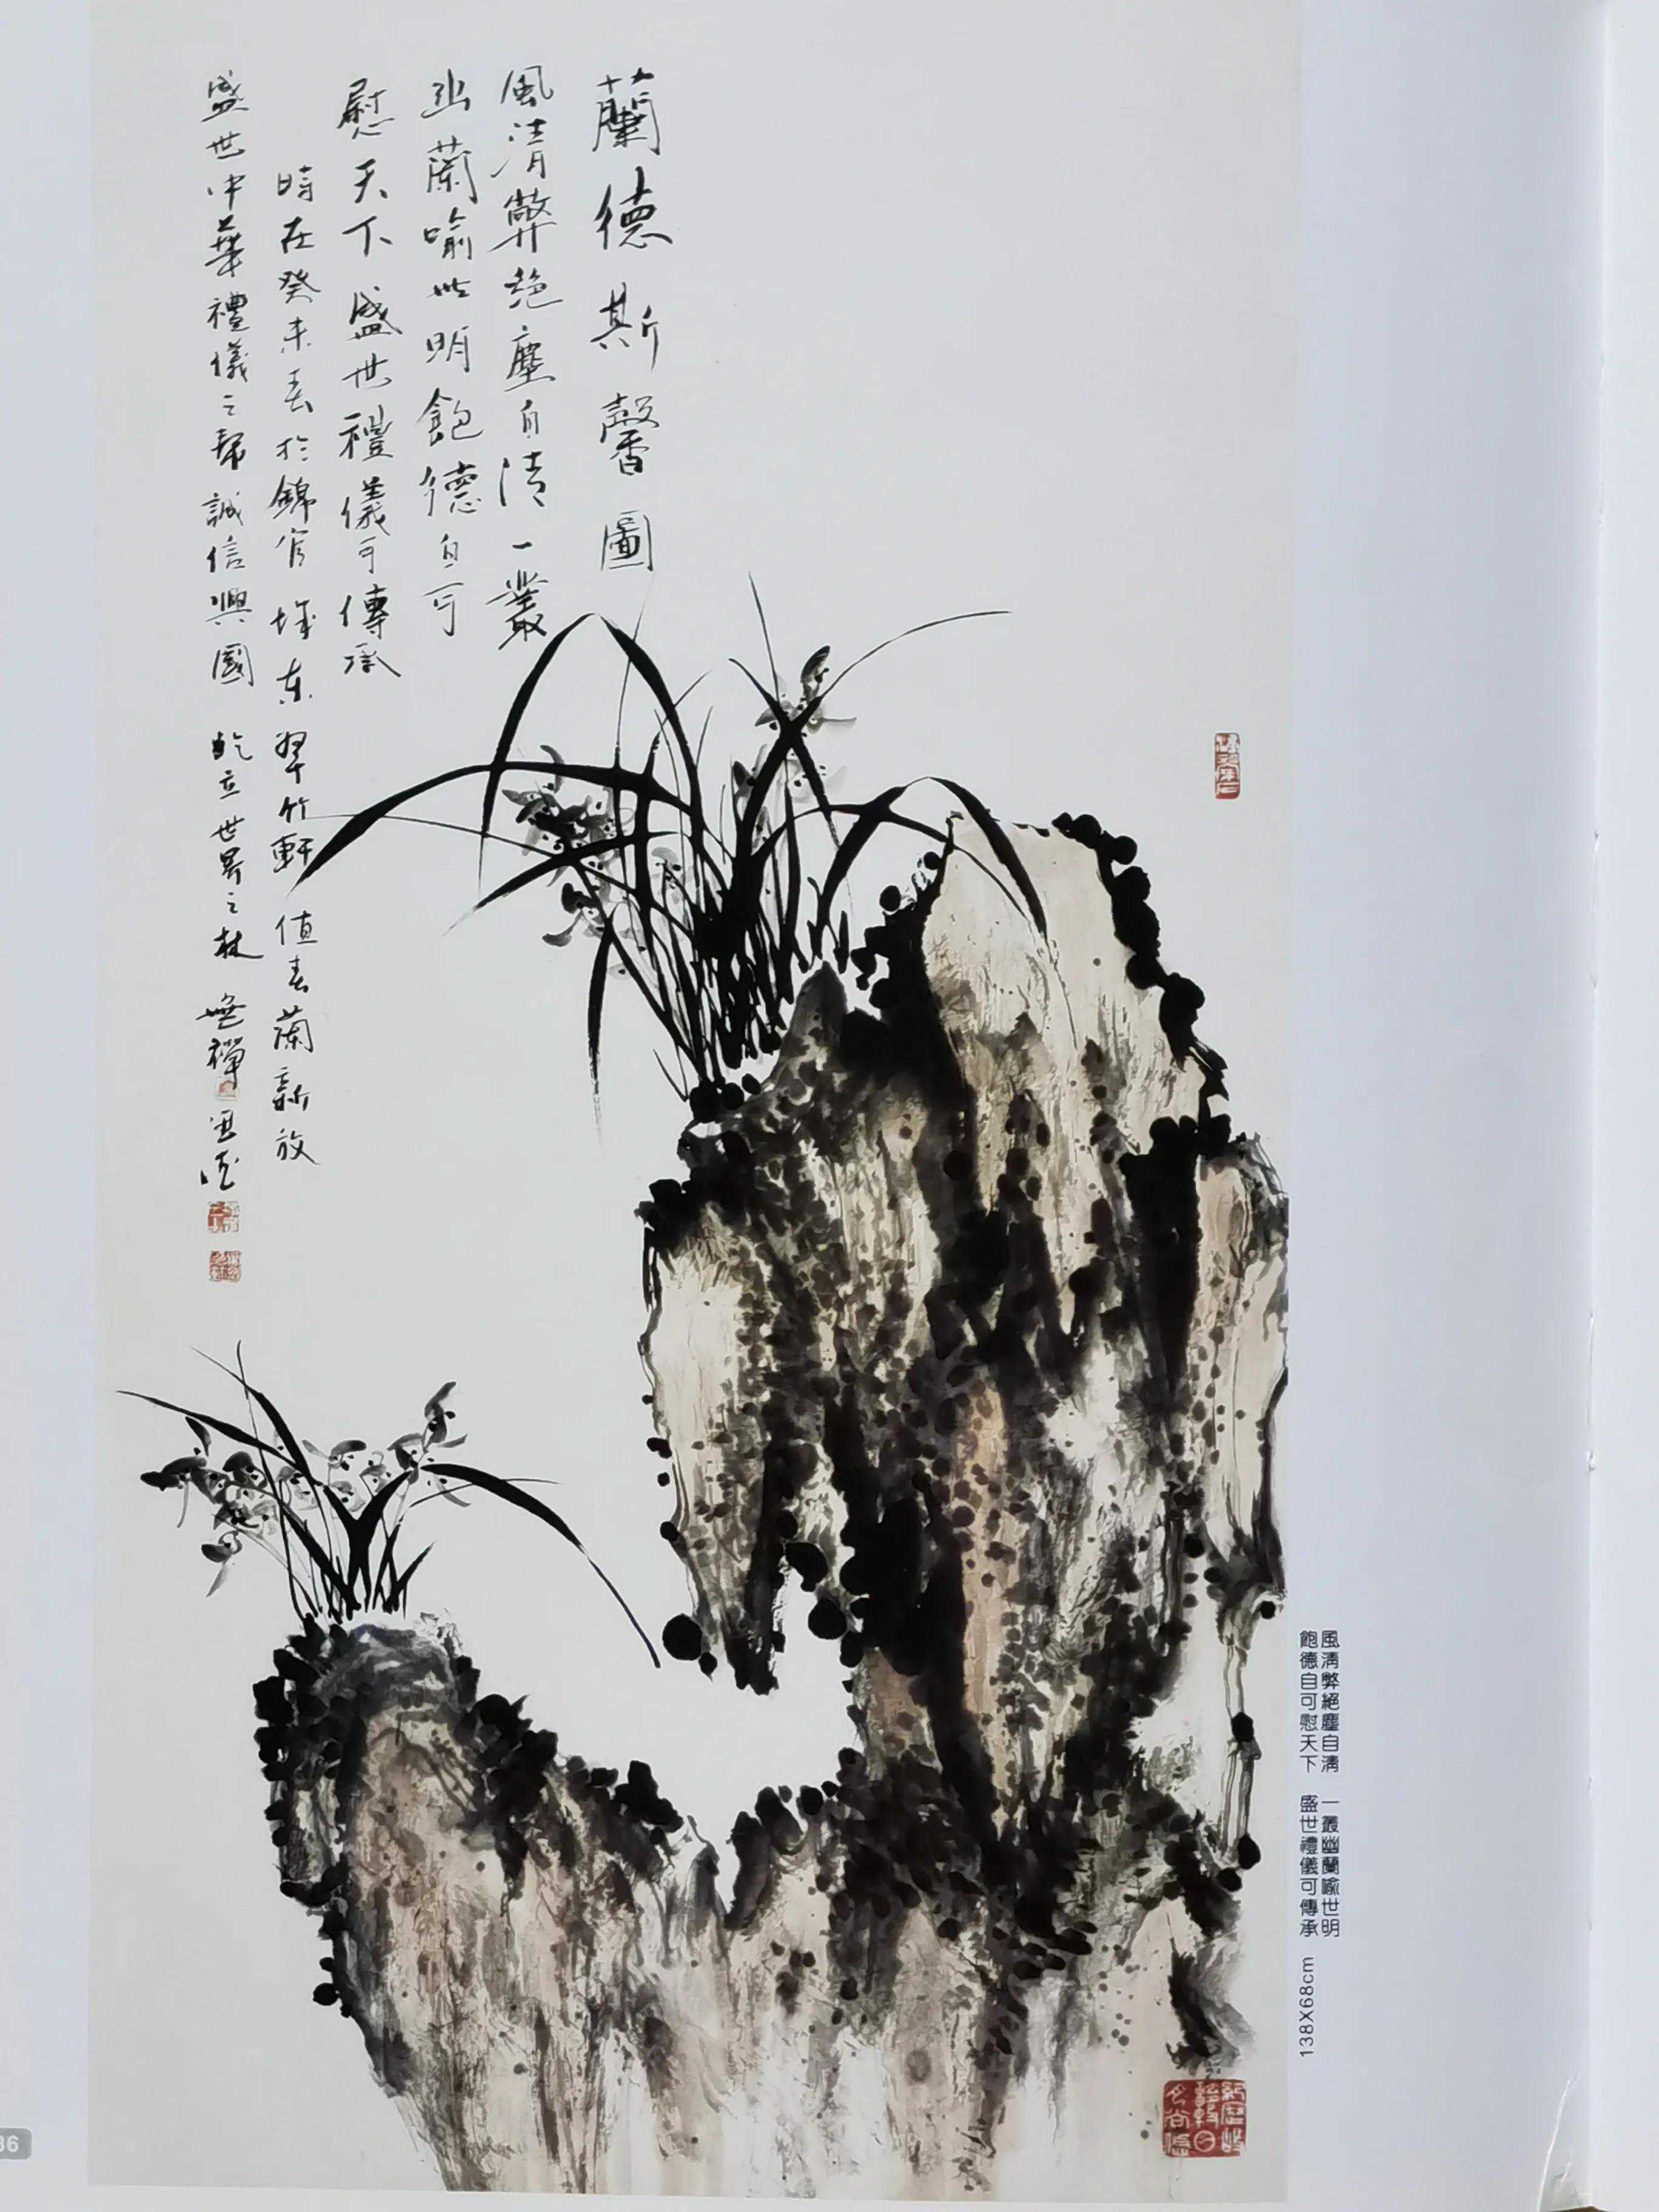 蘭德斯馨圖
風清弊絕塵自清一叢
幽蘭喻世明飽德自可
慰天下盛世禮儀可傳承
時在癸未春於錦官城東翠竹軒值春蘭新放
盛世中華禮儀之邦誠信興國屹立世界之林無禪
風清弊絕塵自清 一叢幽蘭喻世明
飽德自可慰天下 盛世禮儀可傳承 138X68cm
36